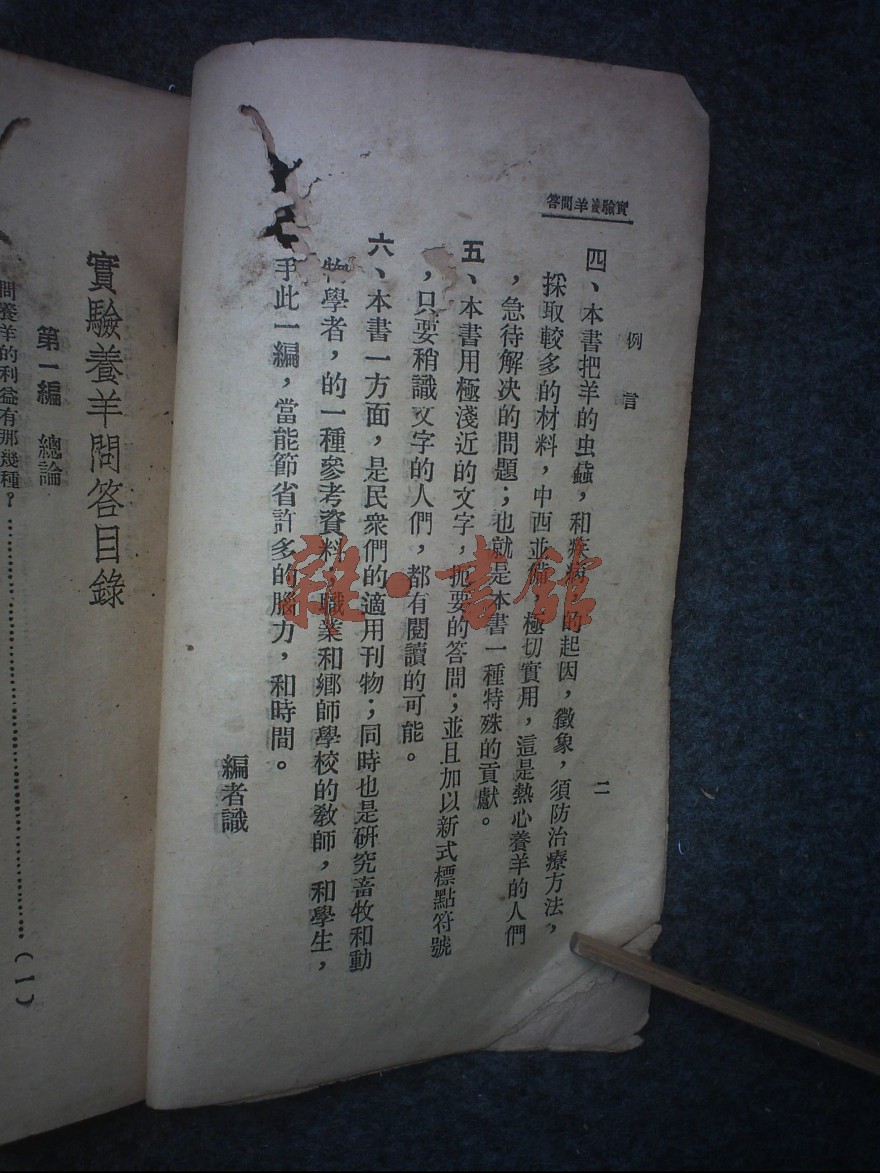 實驗養羊問答
例言
二
四、本書把羊的虫蟲，和疾病 的起因，徵象，須防治療方法，
採取較多的材料，中西並備 極切實用，這是熱心養羊的人們
，急待解決的問題；也就是本書一種特殊的貢獻。
五、本書用極淺近的文字，扼要的答問；並且加以新式標點符號
，只要稍識文字的人們，都有閱讀的可能。
六、本書一方面，是民衆們的適用刊物；同時也是研究畜牧和動
物學者，的一種參考資料，職業和鄉師學校的教師，和學生，
手此一編，當能節省許多的腦力，和時間。
編者識
實驗養羊問答目錄
第一編 總論
問養羊的利益有那幾種？……………………………（一）
雜·書館